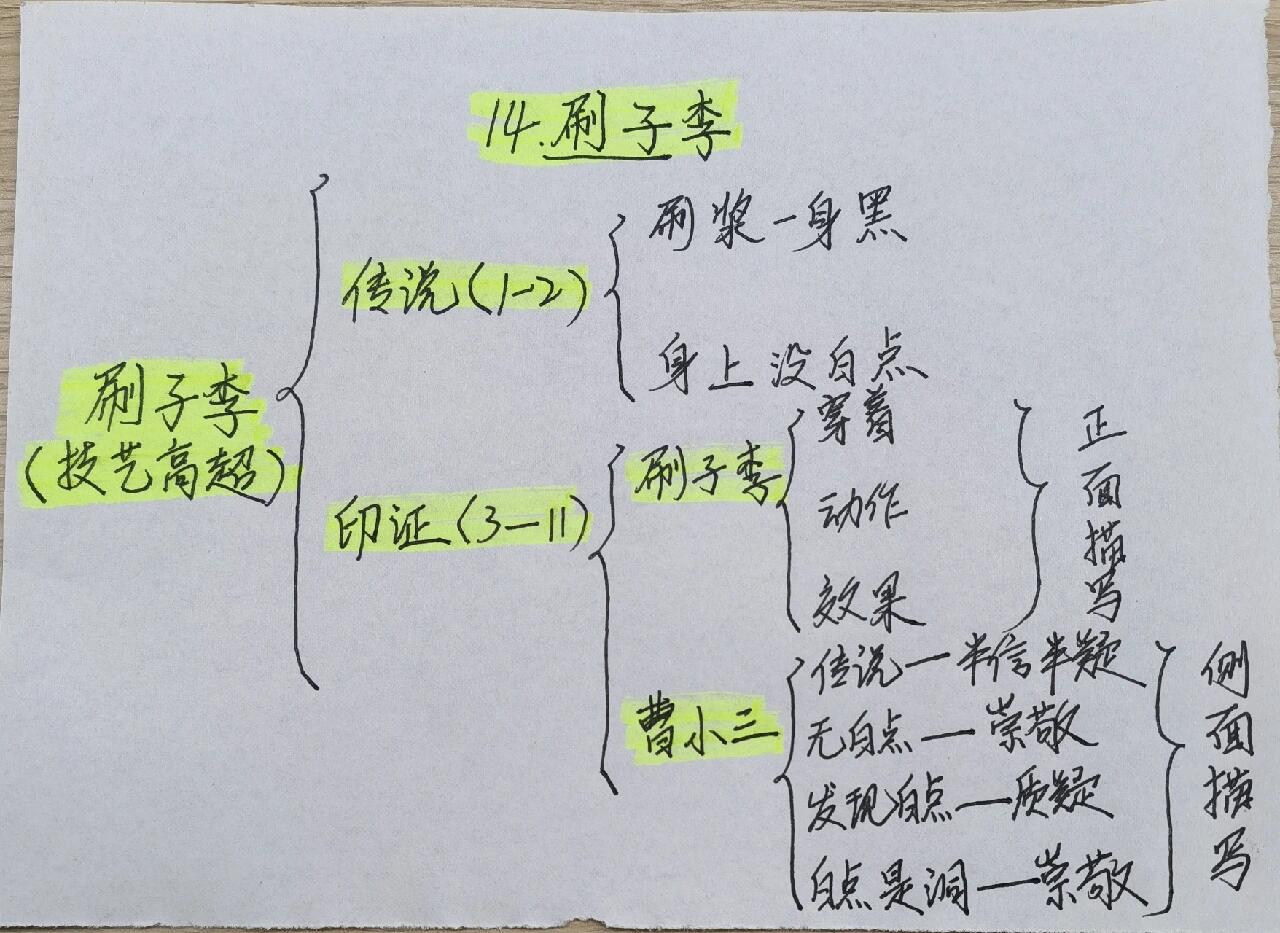 14.刷子李
刷子李
(技艺高超)
传说(1-2)
刷浆一身黑
身上没白点
印证(3—11)
刷子李
穿着
动作
效果
正面描写
曹小三
传说—半信半疑
无白点—崇敬
发现白点—质疑
白点是洞—崇敬
侧面描写